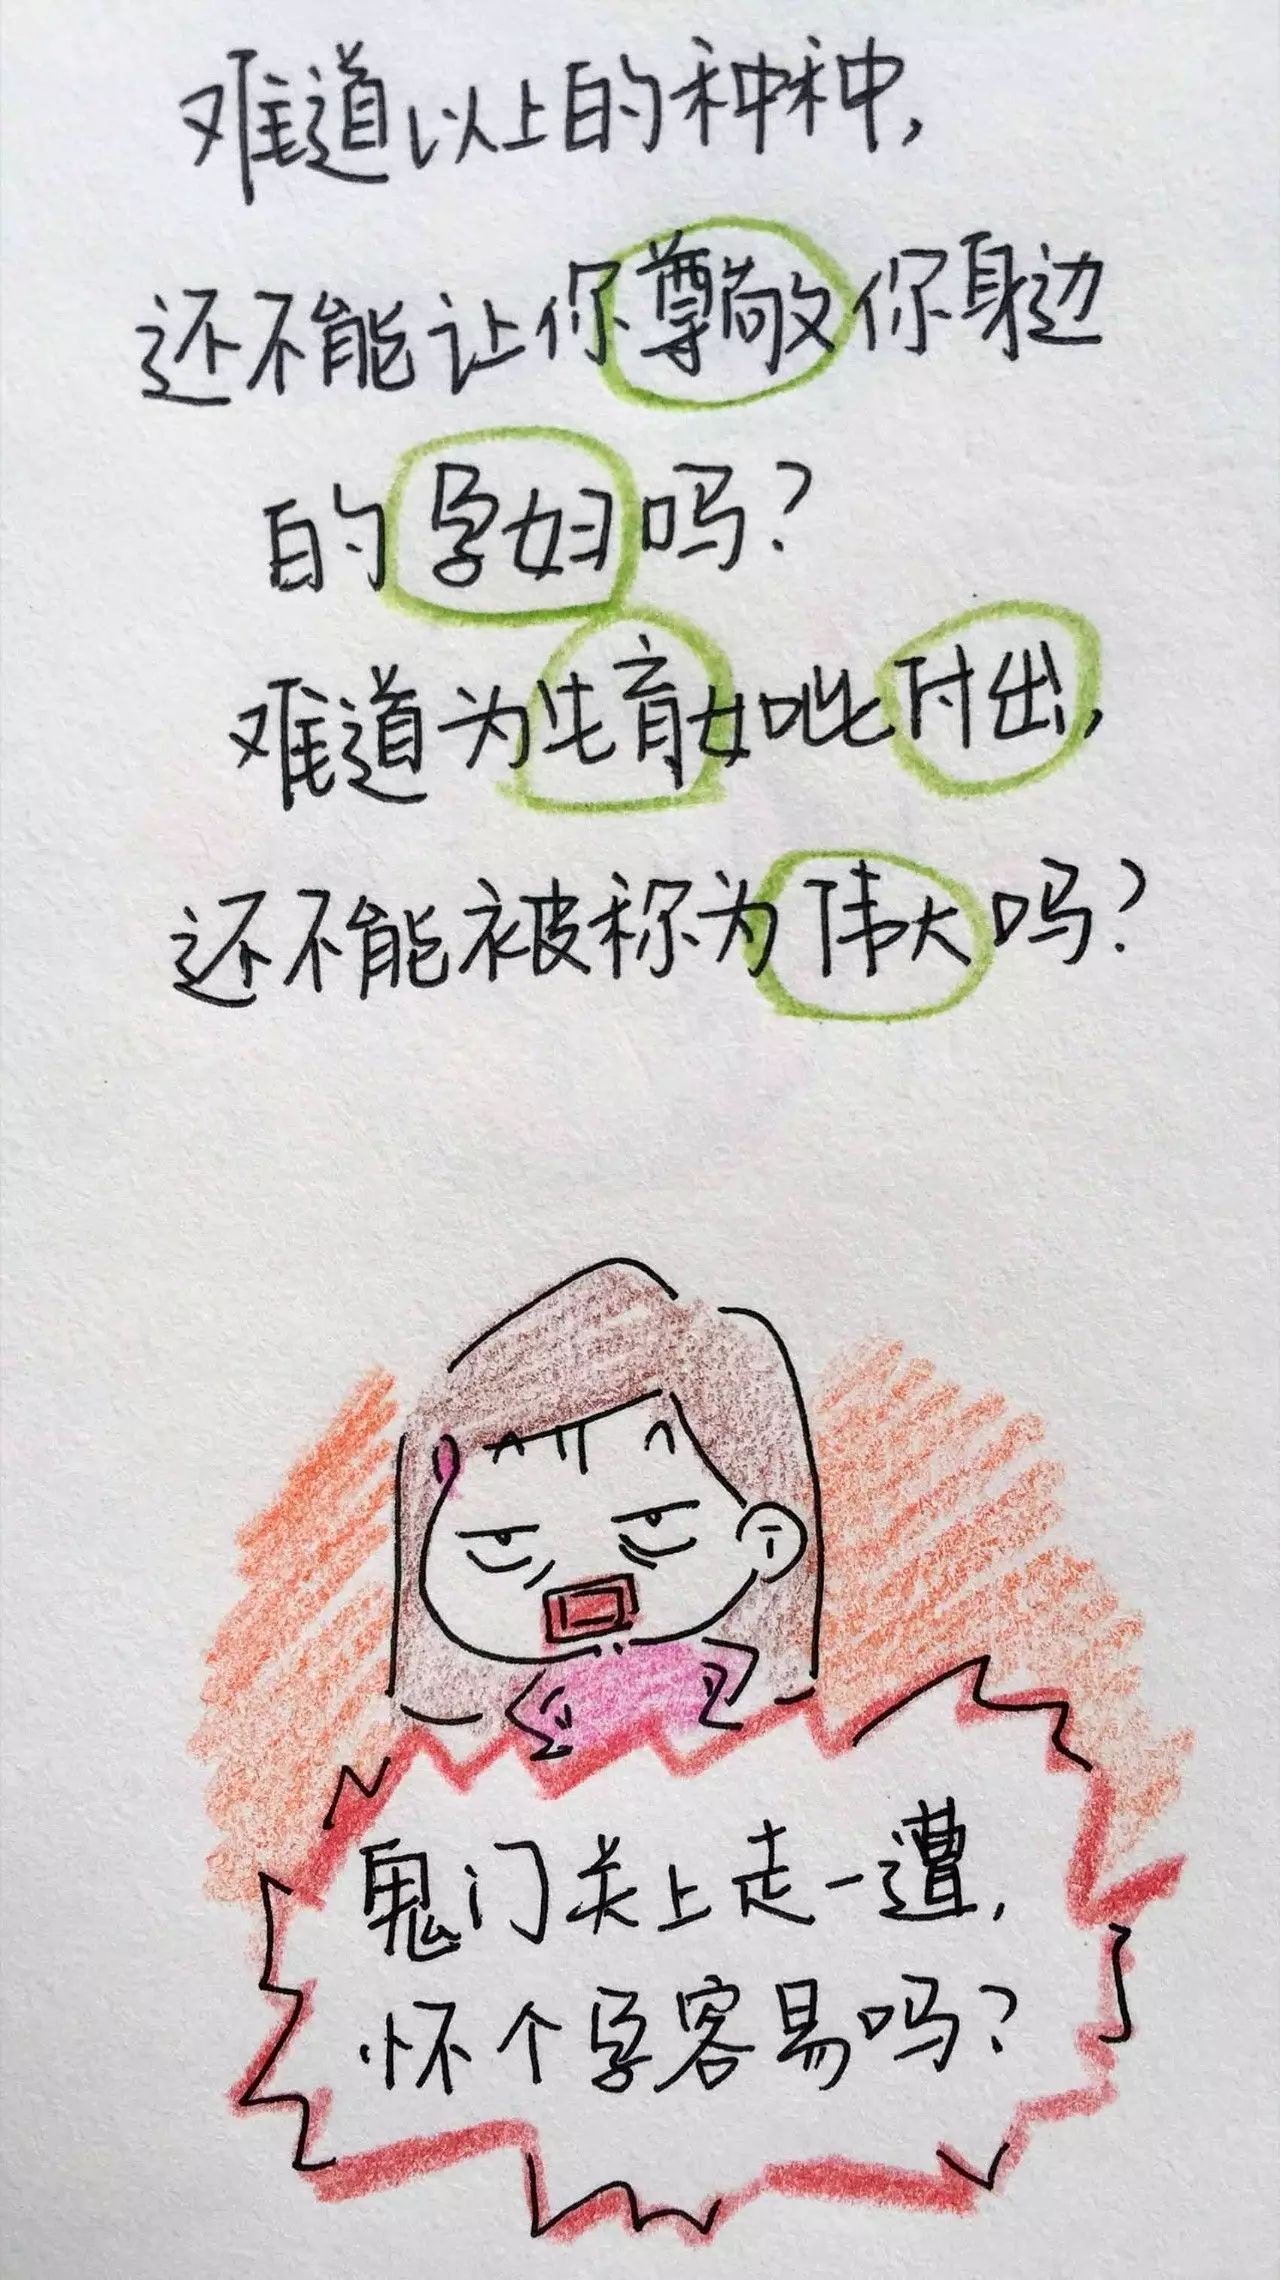 难道以上的种种,
还不能让你尊敬你身边
的孕妇吗?
难道为生育如此付出,
还不能被称为伟大吗?
鬼门关上走一遭,
怀个孕容易吗?